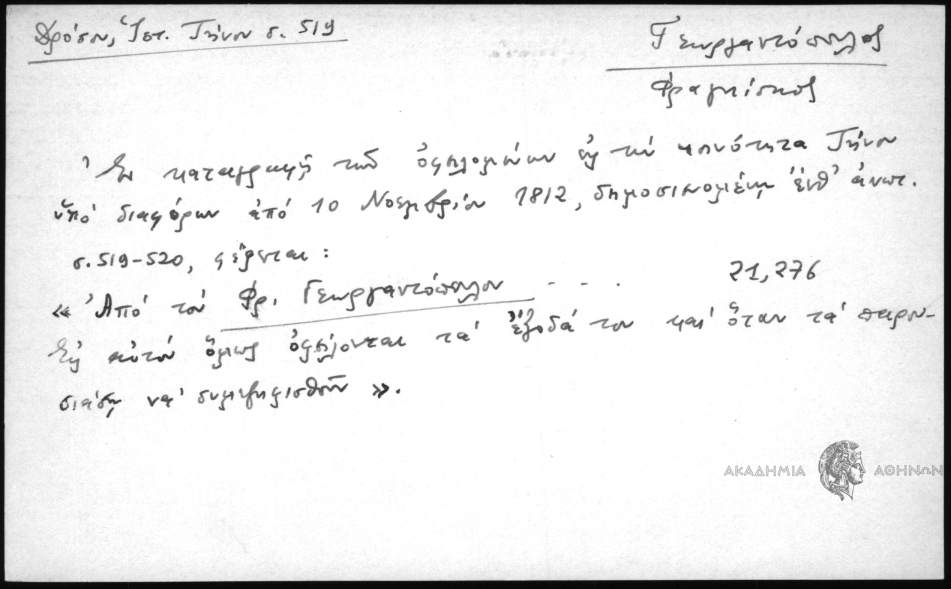 Δρόσου, Ἱστ. Τήνου σ. 519
Γεωργαντόπουλος
Φραγκίσκος
Ἐν καταγραφῇ τῶν ὀφειλομένων εἰς τὴν κοινότητα Τήνου
ὑπὸ διαφόρων ἀπό 10 Νοεμβρίου 1812, δημοσιευομένῃ ἔνθ' ἀνωτ.
σ. 519-520, φέρεται:
« Ἀπό τον Φρ. Γεωργαντόπουλον - - - 21,276
Εἰς αὐτόν ὅμως ὀφείλονται τὰ ἔξοδά του καὶ ὅταν τὰ παρου-
σιάσῃ νὰ συμψηφισθοῦν ».
ΑΚΑΔΗΜΙΑ ΑΘΗΝΩΝ